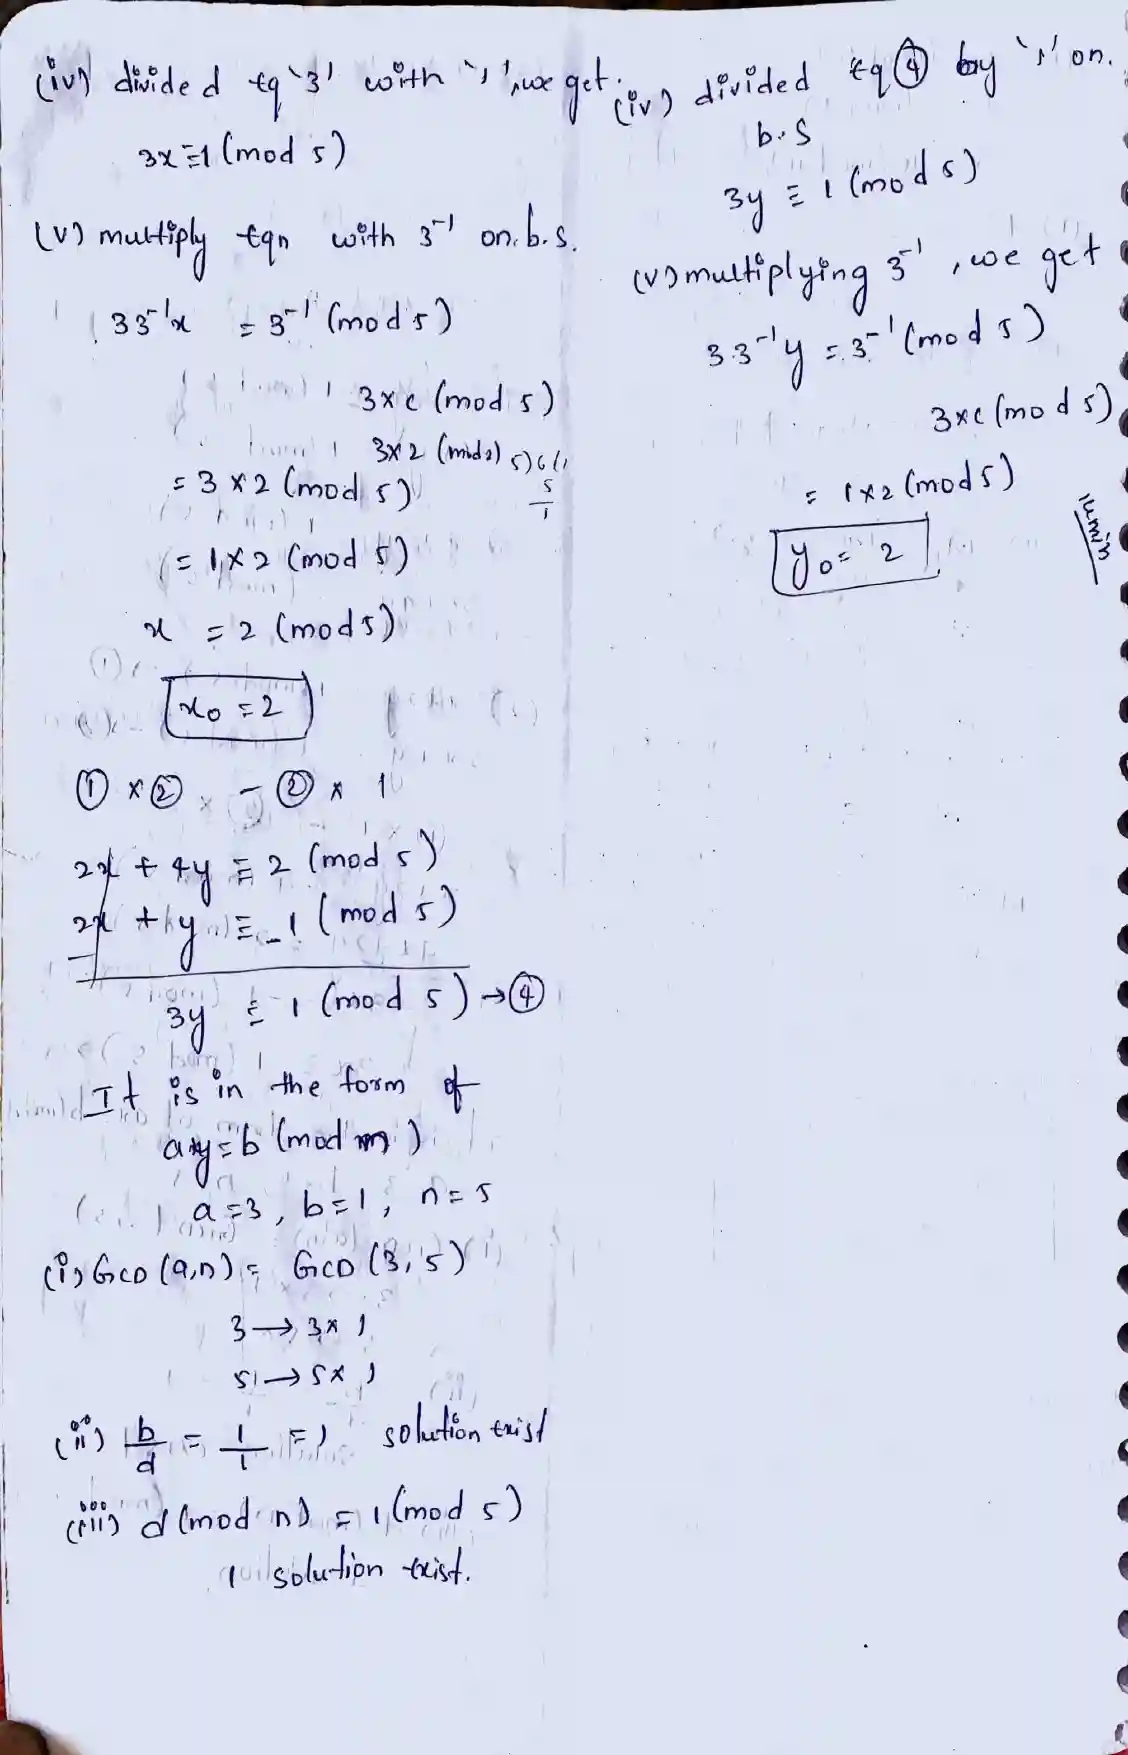 (iv) divided eq '3' with '1', we get.
3x ≡ 1 (mod 5)
(v) multiply eqn with 3⁻¹ on. b. s.
3 3⁻¹x = 3⁻¹ (mod 5)
3×c (mod 5)
3×2 (mod 2) 5)6(1
5
1
= 3 × 2 (mod 5)
= 1 × 2 (mod 5)
x = 2 (mod 5)
x₀ = 2
① × ② - ② × 1
2x + 4y ≡ 2 (mod 5)
2x + y ≡ 1 (mod 5)
- -
3y ≡ 1 (mod 5) → ④
It is in the form of
ay = b (mod n)
a = 3, b = 1, n = 5
(i) GCD (a,n) = GCD (3, 5)
3 → 3 × 1
5 → 5 × 1
(ii) b/d = 1/1 = 1 solution exist
(iii) d (mod n) = 1 (mod 5)
1 solution exist.
(iv) divided eq ④ by '1' on.
b. S
3y ≡ 1 (mod 5)
(v) multiplying 3⁻¹, we get
3.3⁻¹ y = 3⁻¹ (mod 5)
3×c (mod 5)
= 1×2 (mod 5)
y₀ = 2